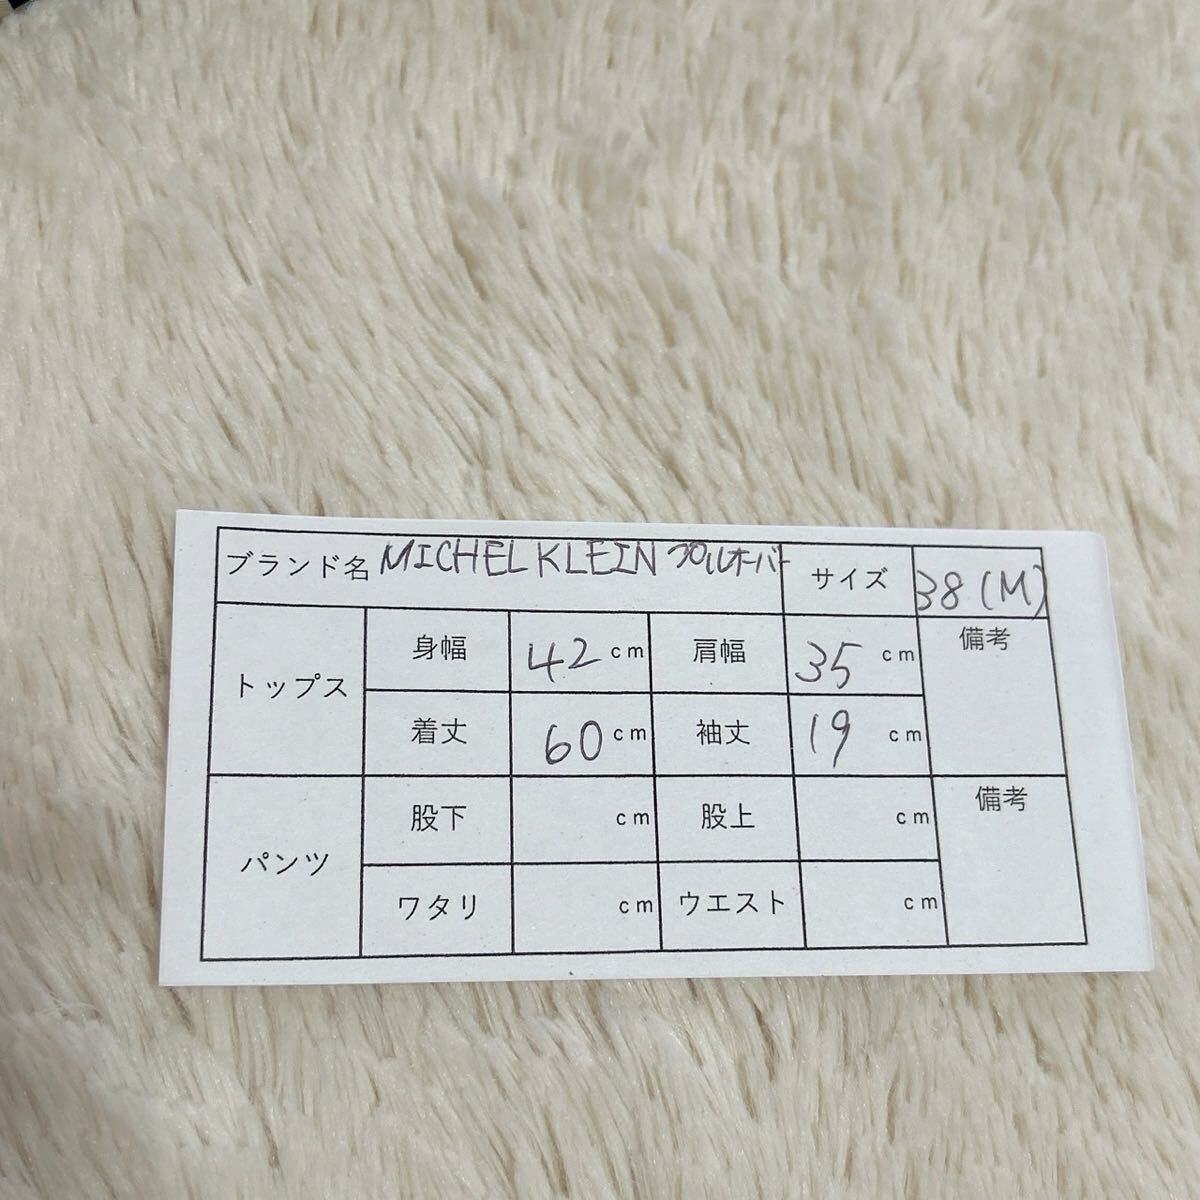 ブランド名 MICHEL KLEIN プルオーバー サイズ 38(M)
トップス 身幅 42 cm 肩幅 35 cm 備考
着丈 60 cm 袖丈 19 cm
パンツ 股下 cm 股上 cm 備考
ワタリ cm ウエスト cm